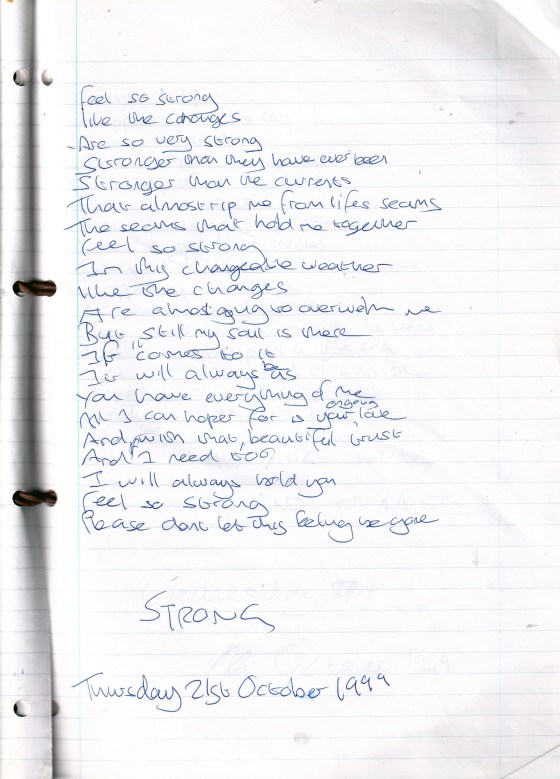 Feel so strong
like the changes
Are so very strong
Stronger than they have ever been
Stronger than the currents
That almost rip me from lifes seams
The seams that hold me together
Feel so strong
In this changeable weather
like the changes
Are almost going to overwelm me
But still my soul is there
If comes to it
It will always be us
You have everything of me
All I can hoper for is your ongoing love
And with that beautiful trust
And I need too
I will always hold you
Feel so strong
Please dont let this feeling be gone
STRONG
Thursday 21st October 1999